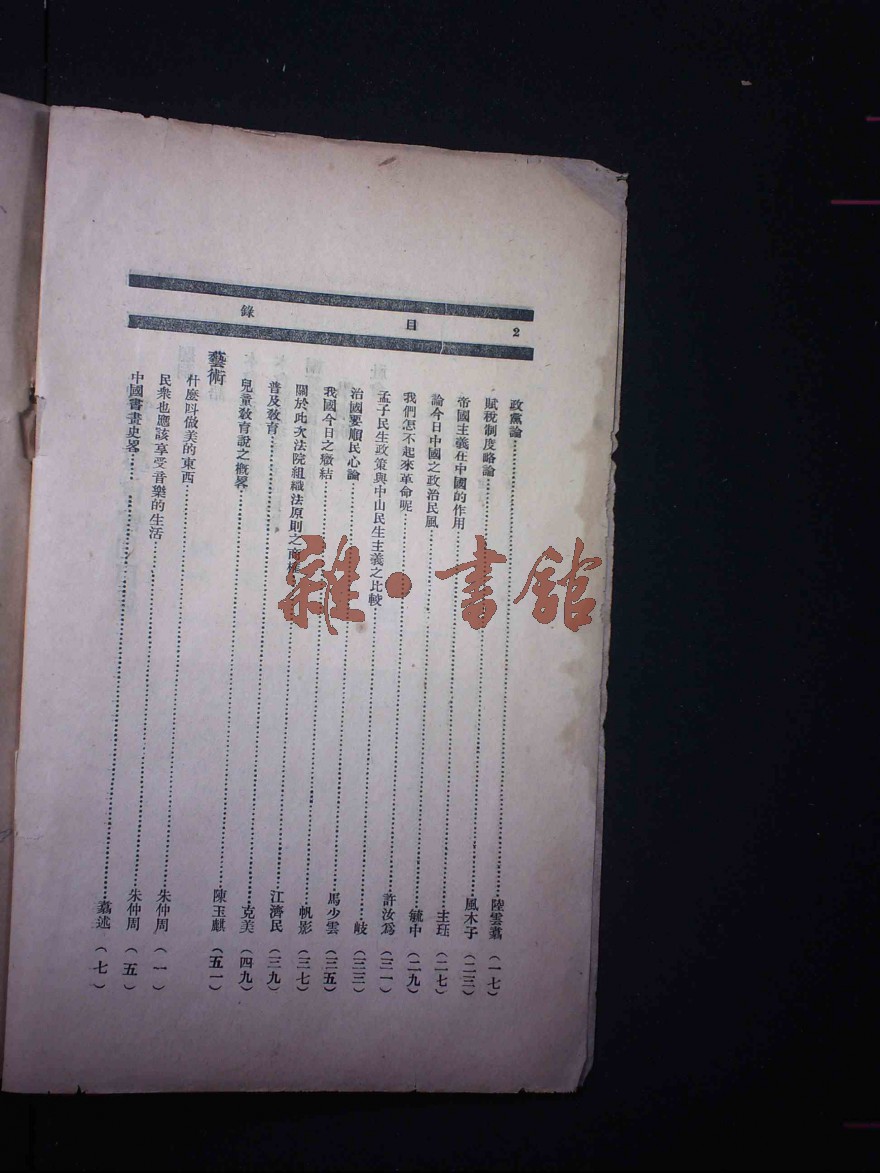 2 目 錄
政黨論……陸雲翥(一七)
賦稅制度略論……風木子(二三)
帝國主義在中國的作用……主珏(二七)
論今日中國之政治民風……毓中(二九)
我們怎不起來革命呢……許汝爲(三一)
孟子民生政策與中山民生主義之比較……岐(三三)
治國要順民心論……馬少雲(三五)
我國今日之癥結……帆影(三七)
關於此次法院組織法原則之商榷……江濟民(三九)
普及敎育……克美(四九)
兒童敎育說之概畧……陳玉麒(五一)
藝術
什麼叫做美的東西……朱仲周(一)
民衆也應該享受音樂的生活……朱仲周(五)
中國書畫史畧……翥述(七)
雜·書館